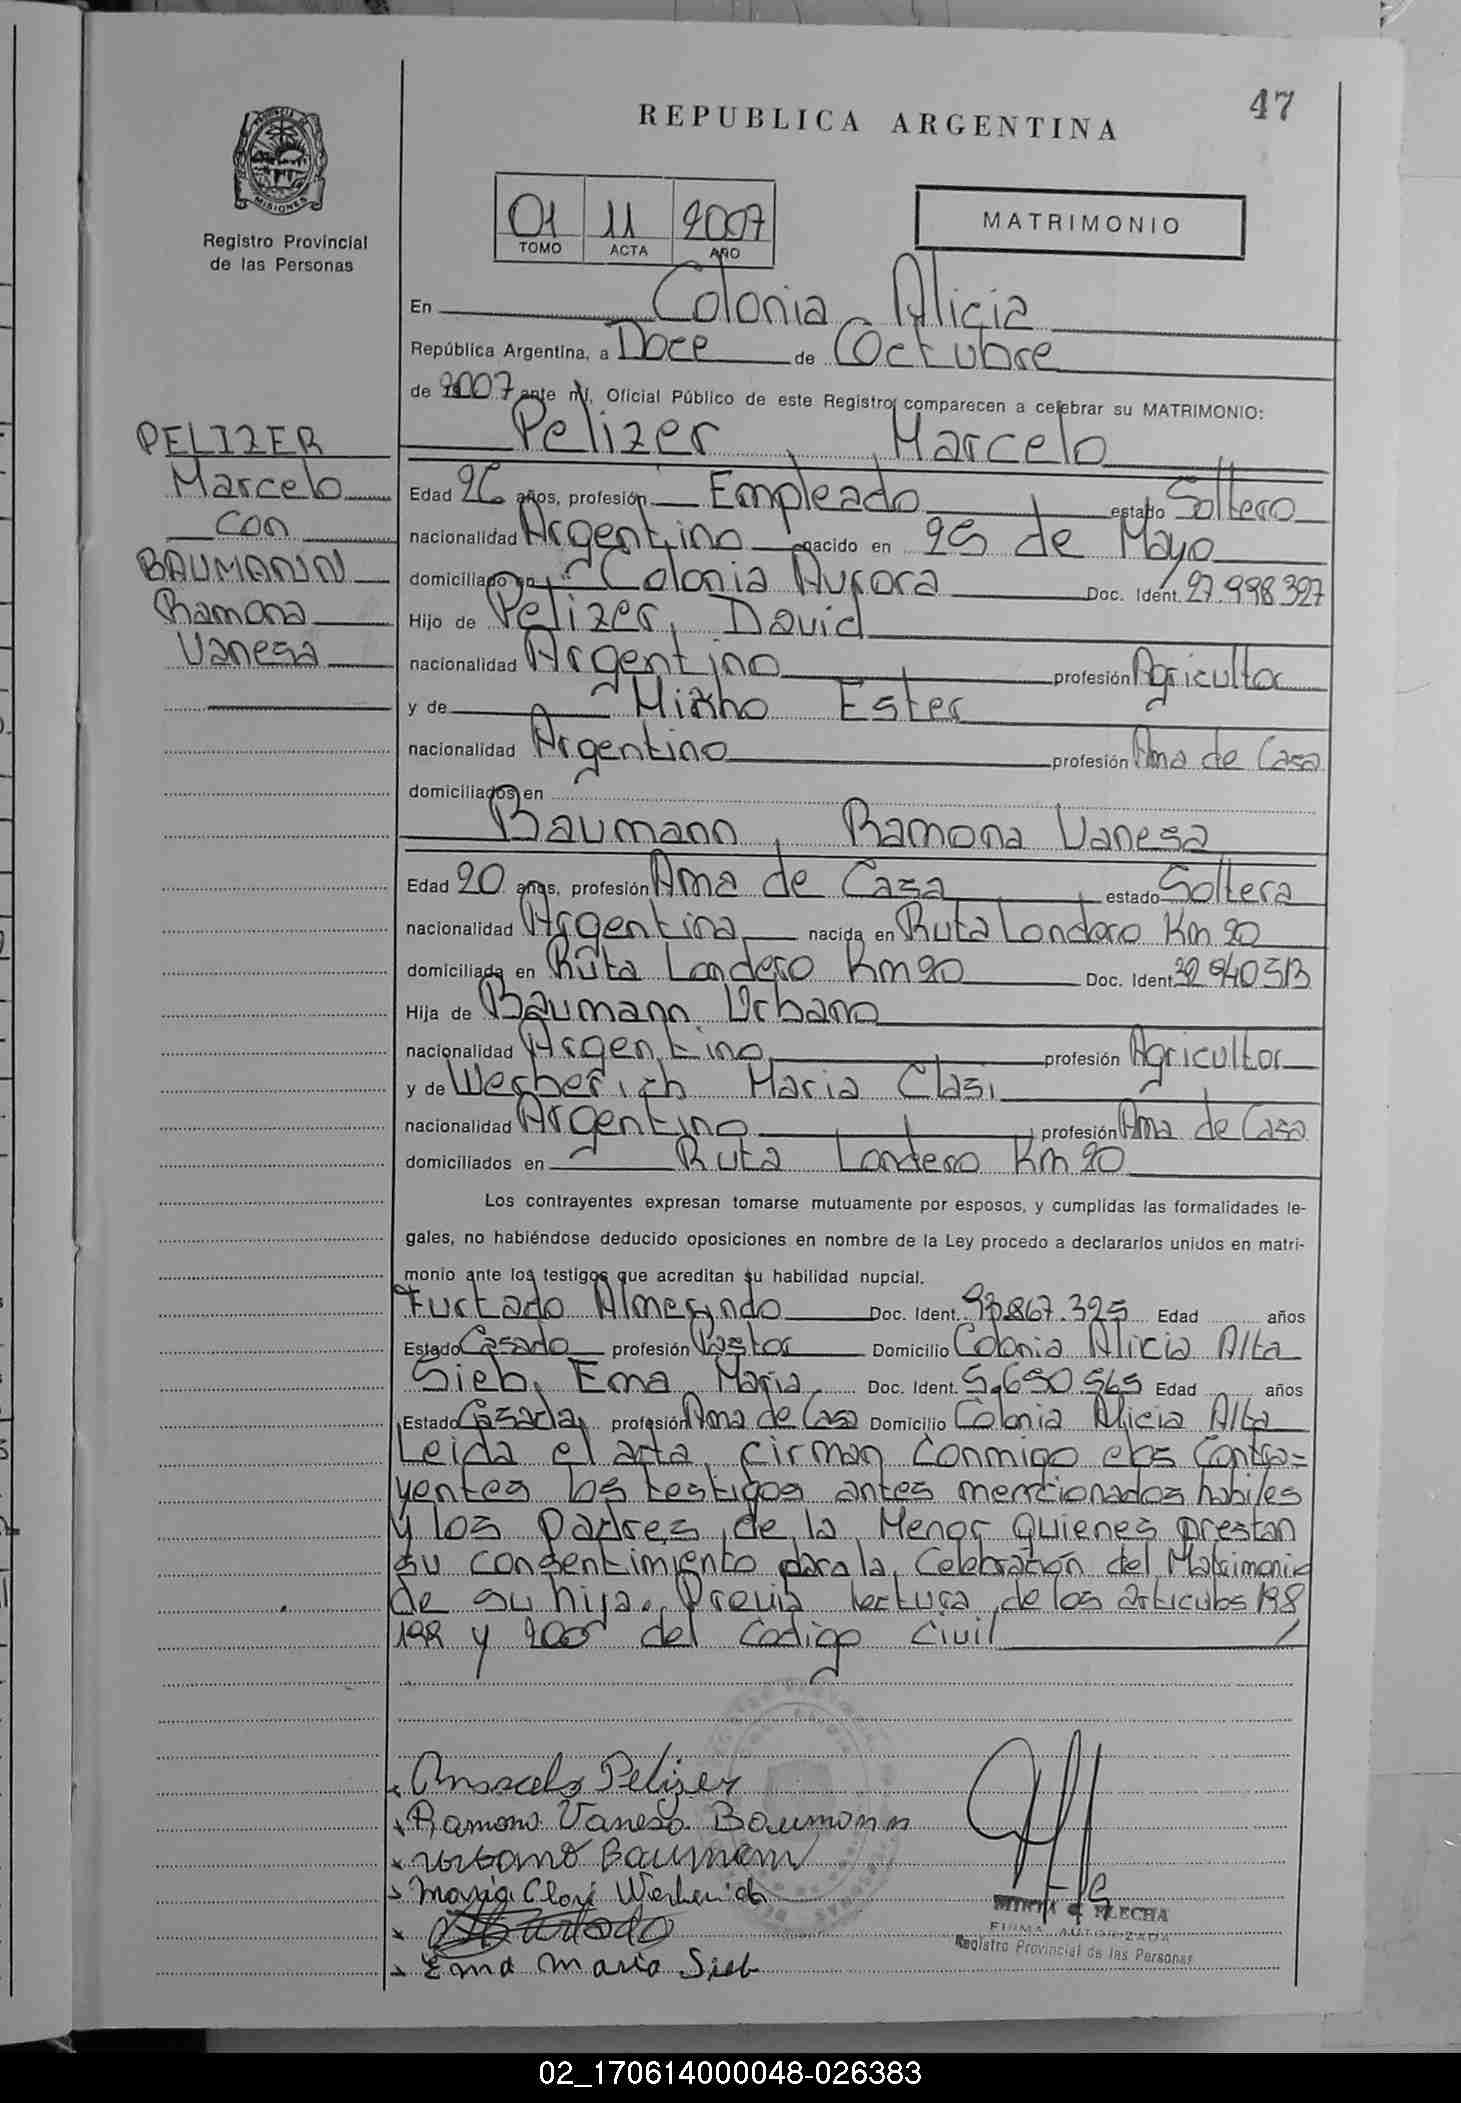 47
REPUBLICA ARGENTINA
MISIONES
Registro Provincial
de las Personas
01 11 2007
TOMO ACTA AÑO
MATRIMONIO
En Colonia Alicia
República Argentina, a Doce de Octubre
de 2007 ante mí, Oficial Público de este Registro comparecen a celebrar su MATRIMONIO:
PELIZER
Marcelo
con
BAUMANN
Ramona
Vanesa
Pelizer, Marcelo
Edad 26 años, profesión Empleado estado Soltero
nacionalidad Argentino nacido en 25 de Mayo
domiciliado en Colonia Aurora Doc. Ident. 27.998.327
Hijo de Pelizer, David
nacionalidad Argentino profesión Agricultor
y de Ester
nacionalidad Argentino profesión Ama de Casa
domiciliados en
Baumann, Ramona Vanesa
Edad 20 años, profesión Ama de Casa estado Soltera
nacionalidad Argentina nacida en Ruta Londero Km 20
domiciliada en Ruta Londero Km 20 Doc. Ident. 32.940.513
Hija de Baumann, Urbano
nacionalidad Argentino profesión Agricultor
y de Werherich Maria Clasi
nacionalidad Argentino profesión Ama de Casa
domiciliados en Ruta Londero Km 20
Los contrayentes expresan tomarse mutuamente por esposos, y cumplidas las formalidades le-
gales, no habiéndose deducido oposiciones en nombre de la Ley procedo a declararlos unidos en matri-
monio ante los testigos que acreditan su habilidad nupcial.
Furtado Almerindo Doc. Ident. 93.867.325 Edad años
Estado Casado profesión Pastor Domicilio Colonia Alicia Alta
Sieb, Ema Maria Doc. Ident. 5.650.565 Edad años
Estado Casada profesión Ama de Casa Domicilio Colonia Alicia Alta
Leida el acta, firman conmigo los Contra=
yentes los testigos antes mencionados habiles
y los padres de la Menor quienes prestan
su consentimiento para la Celebración del Matrimonio
de su hija. Previa lectura de los articulos 198
199 y 200 del Codigo Civil
Marcelo Pelizer
Ramona Vanesa Baumann
Urbano Baumann
Maria Clasi Werherich
Furtado
Ema Maria Sieb
FLECHA
FIRMA AUTORIZADA
Registro Provincial de las Personas
02_170614000048-026383